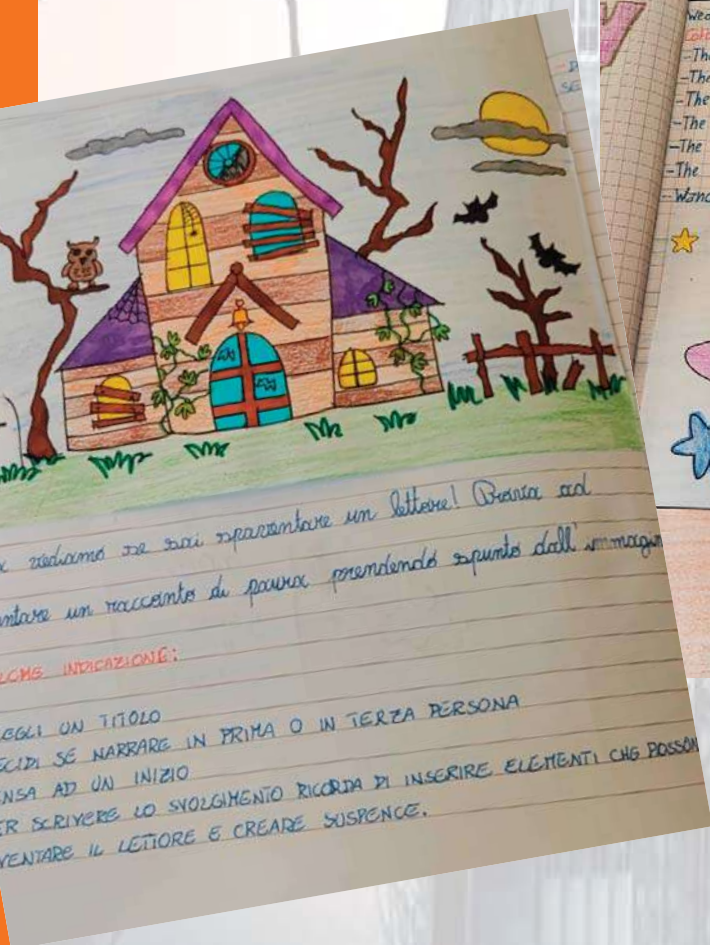 vediamo se sai spaventare un lettore! Prova ad
ntare un racconto di paura prendendo spunto dall'immagin
LCHE INDICAZIONE:
EGLI UN TITOLO
ECIDI SE NARRARE IN PRIMA O IN TERZA PERSONA
ENSA AD UN INIZIO
ER SCRIVERE LO SVOLGIMENTO RICORDA DI INSERIRE ELEMENTI CHE POSSON
VENTARE IL LETTORE E CREARE SUSPENCE.
- The
- The
- The
- The
- The